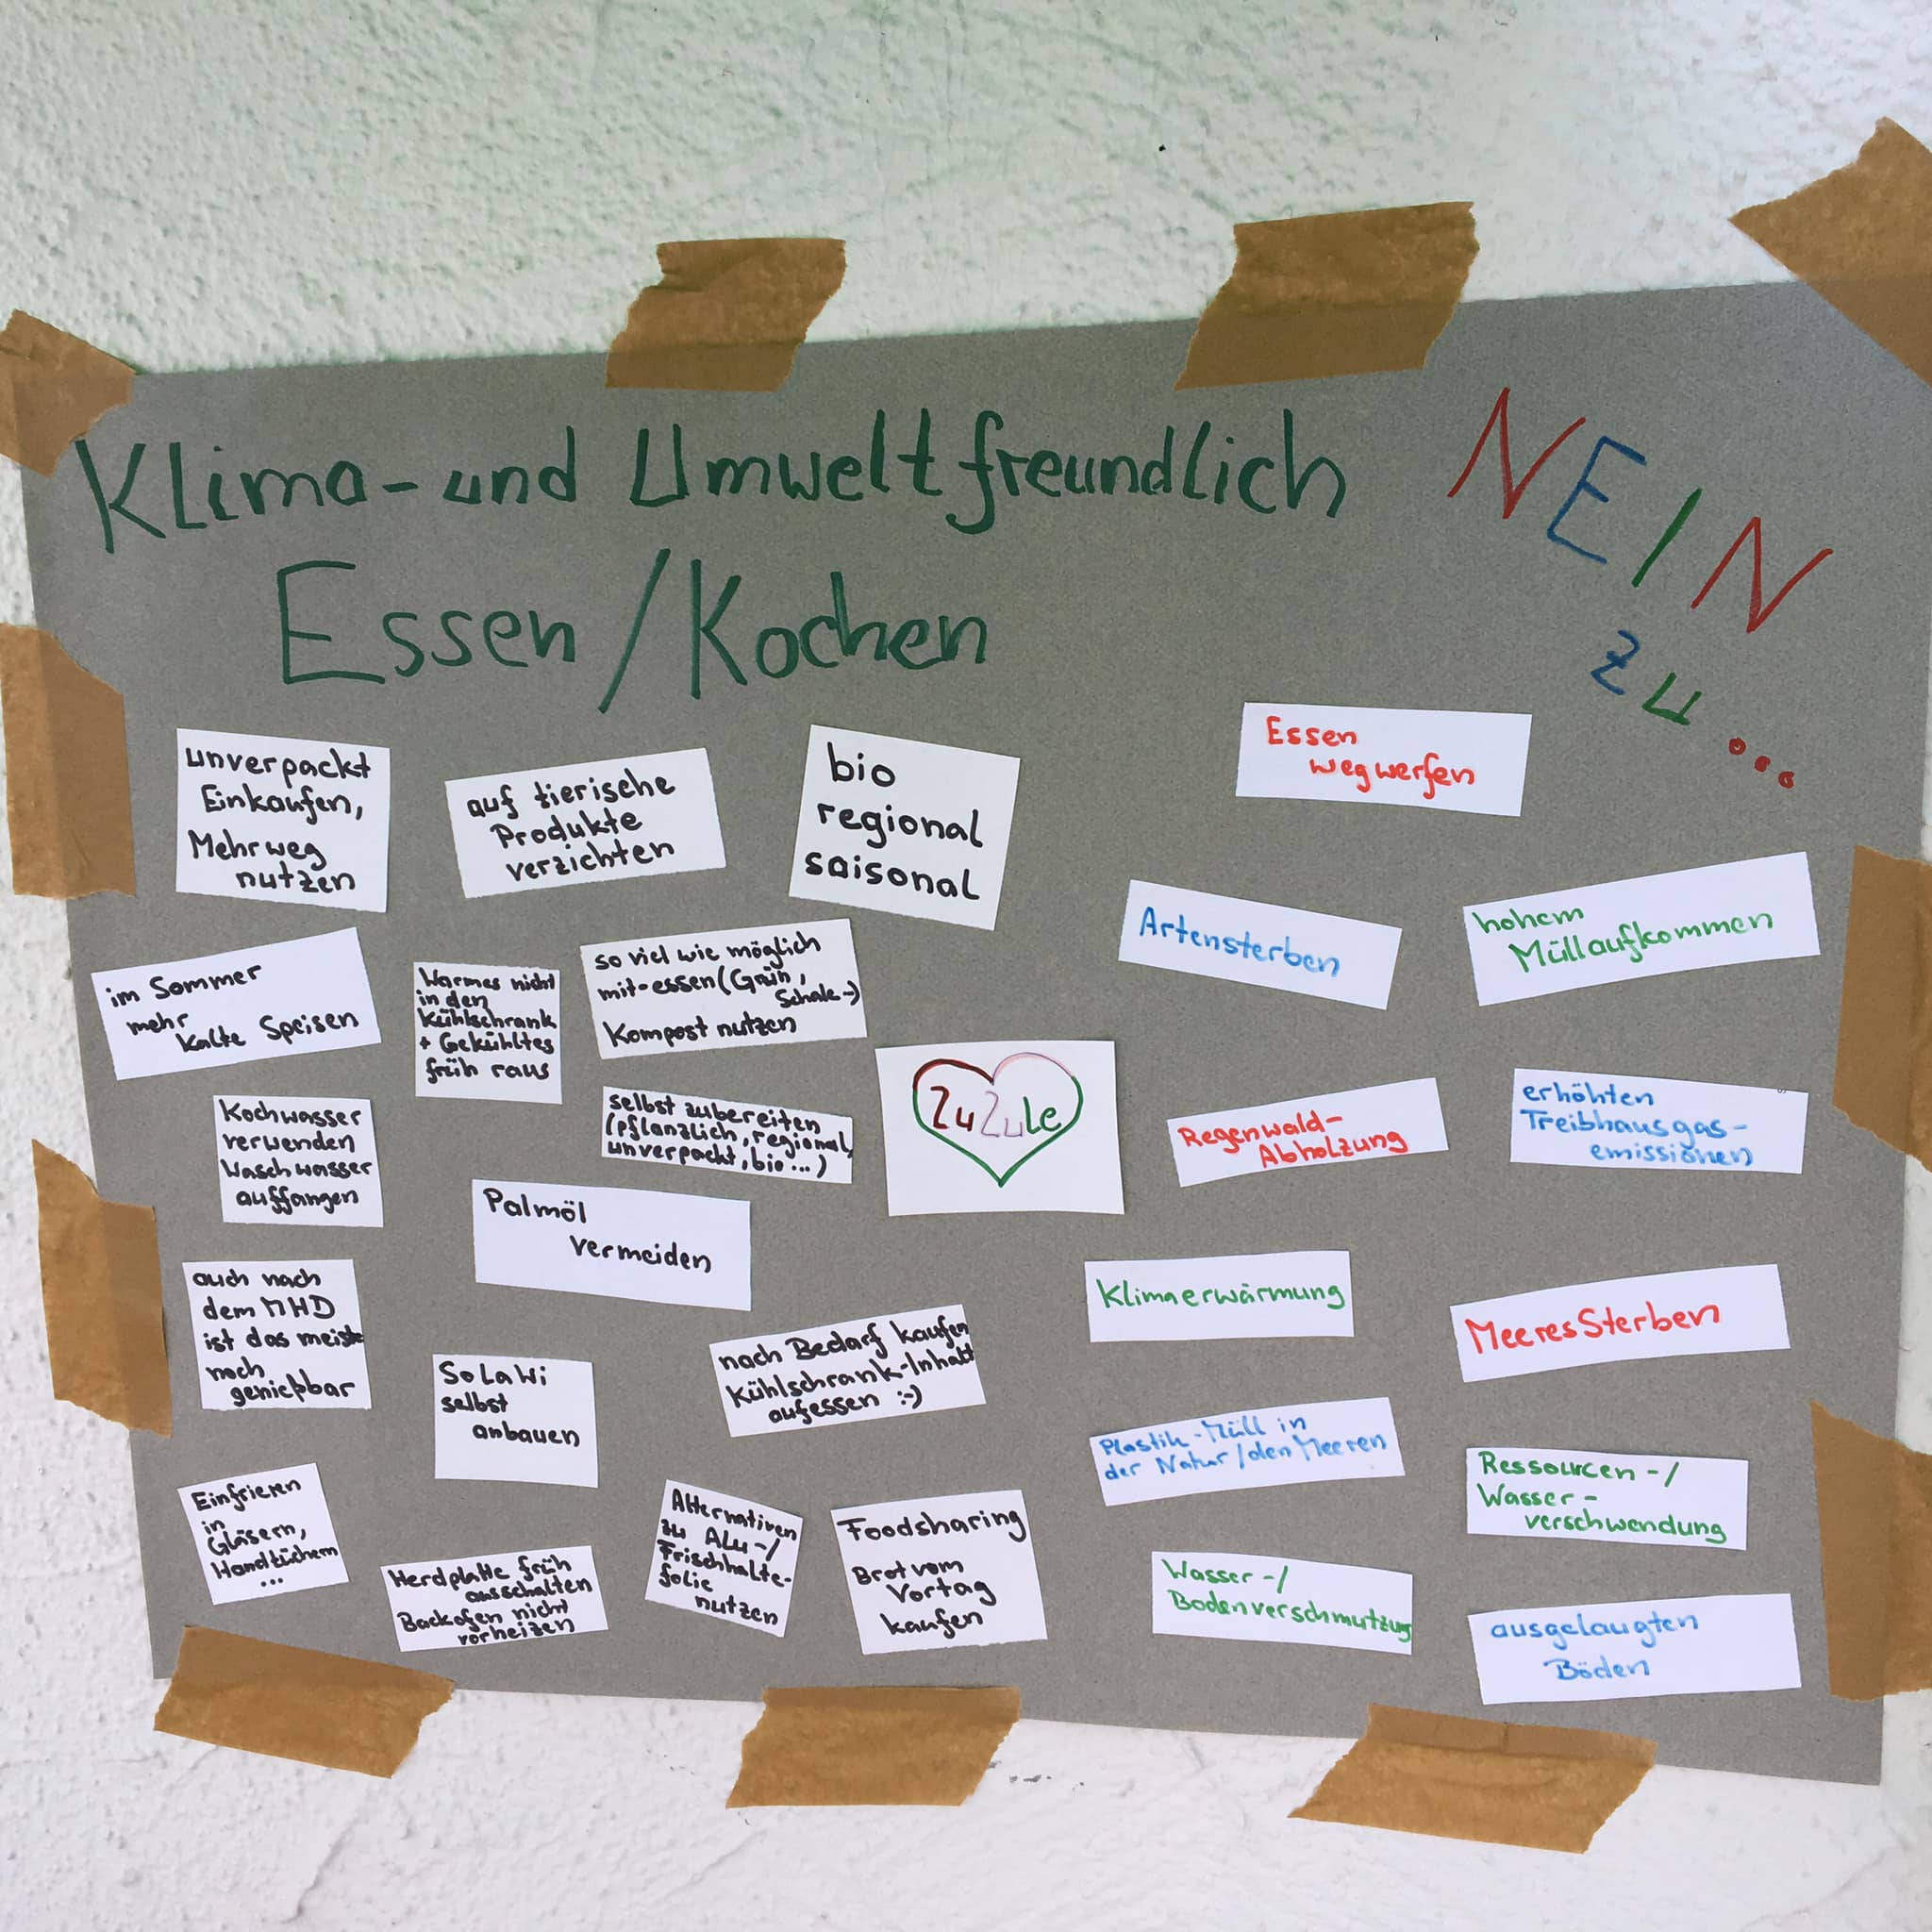 Klima- und Umweltfreundlich
Essen/Kochen
NEIN
zu...
unverpackt
Einkaufen,
Mehrweg
nutzen
auf tierische
Produkte
verzichten
bio
regional
saisonal
im Sommer
mehr
kalte Speisen
Warmes nicht
in den
Kühlschrank
+ Gekühltes
früh raus
so viel wie möglich
mit-essen (Grün,
Schale..)
Kompost nutzen
Kochwasser
verwenden
Waschwasser
auffangen
selbst zubereiten
(pflanzlich, regional,
unverpackt, bio ...)
ZuZuLe
Palmöl
vermeiden
auch nach
dem MHD
ist das meiste
noch
genießbar
SoLaWi
selbst
anbauen
nach Bedarf kaufen
Kühlschrank-Inhalt
aufessen :-)
Einfrieren
in
Gläsern,
Handtüchern
...
Herdplatte früh
ausschalten
Backofen nicht
vorheizen
Alternativen
zu Alu-/
Frischhalte-
folie
nutzen
Foodsharing
Brot vom
Vortag
kaufen
Essen
wegwerfen
Artensterben
hohem
Müllaufkommen
Regenwald-
Abholzung
erhöhten
Treibhausgas-
emissionen
Klimaerwärmung
MeeresSterben
Plastik-Müll in
der Natur/den Meeren
Ressourcen-/
Wasser-
verschwendung
Wasser-/
Bodenverschmutzug
ausgelaugten
Böden